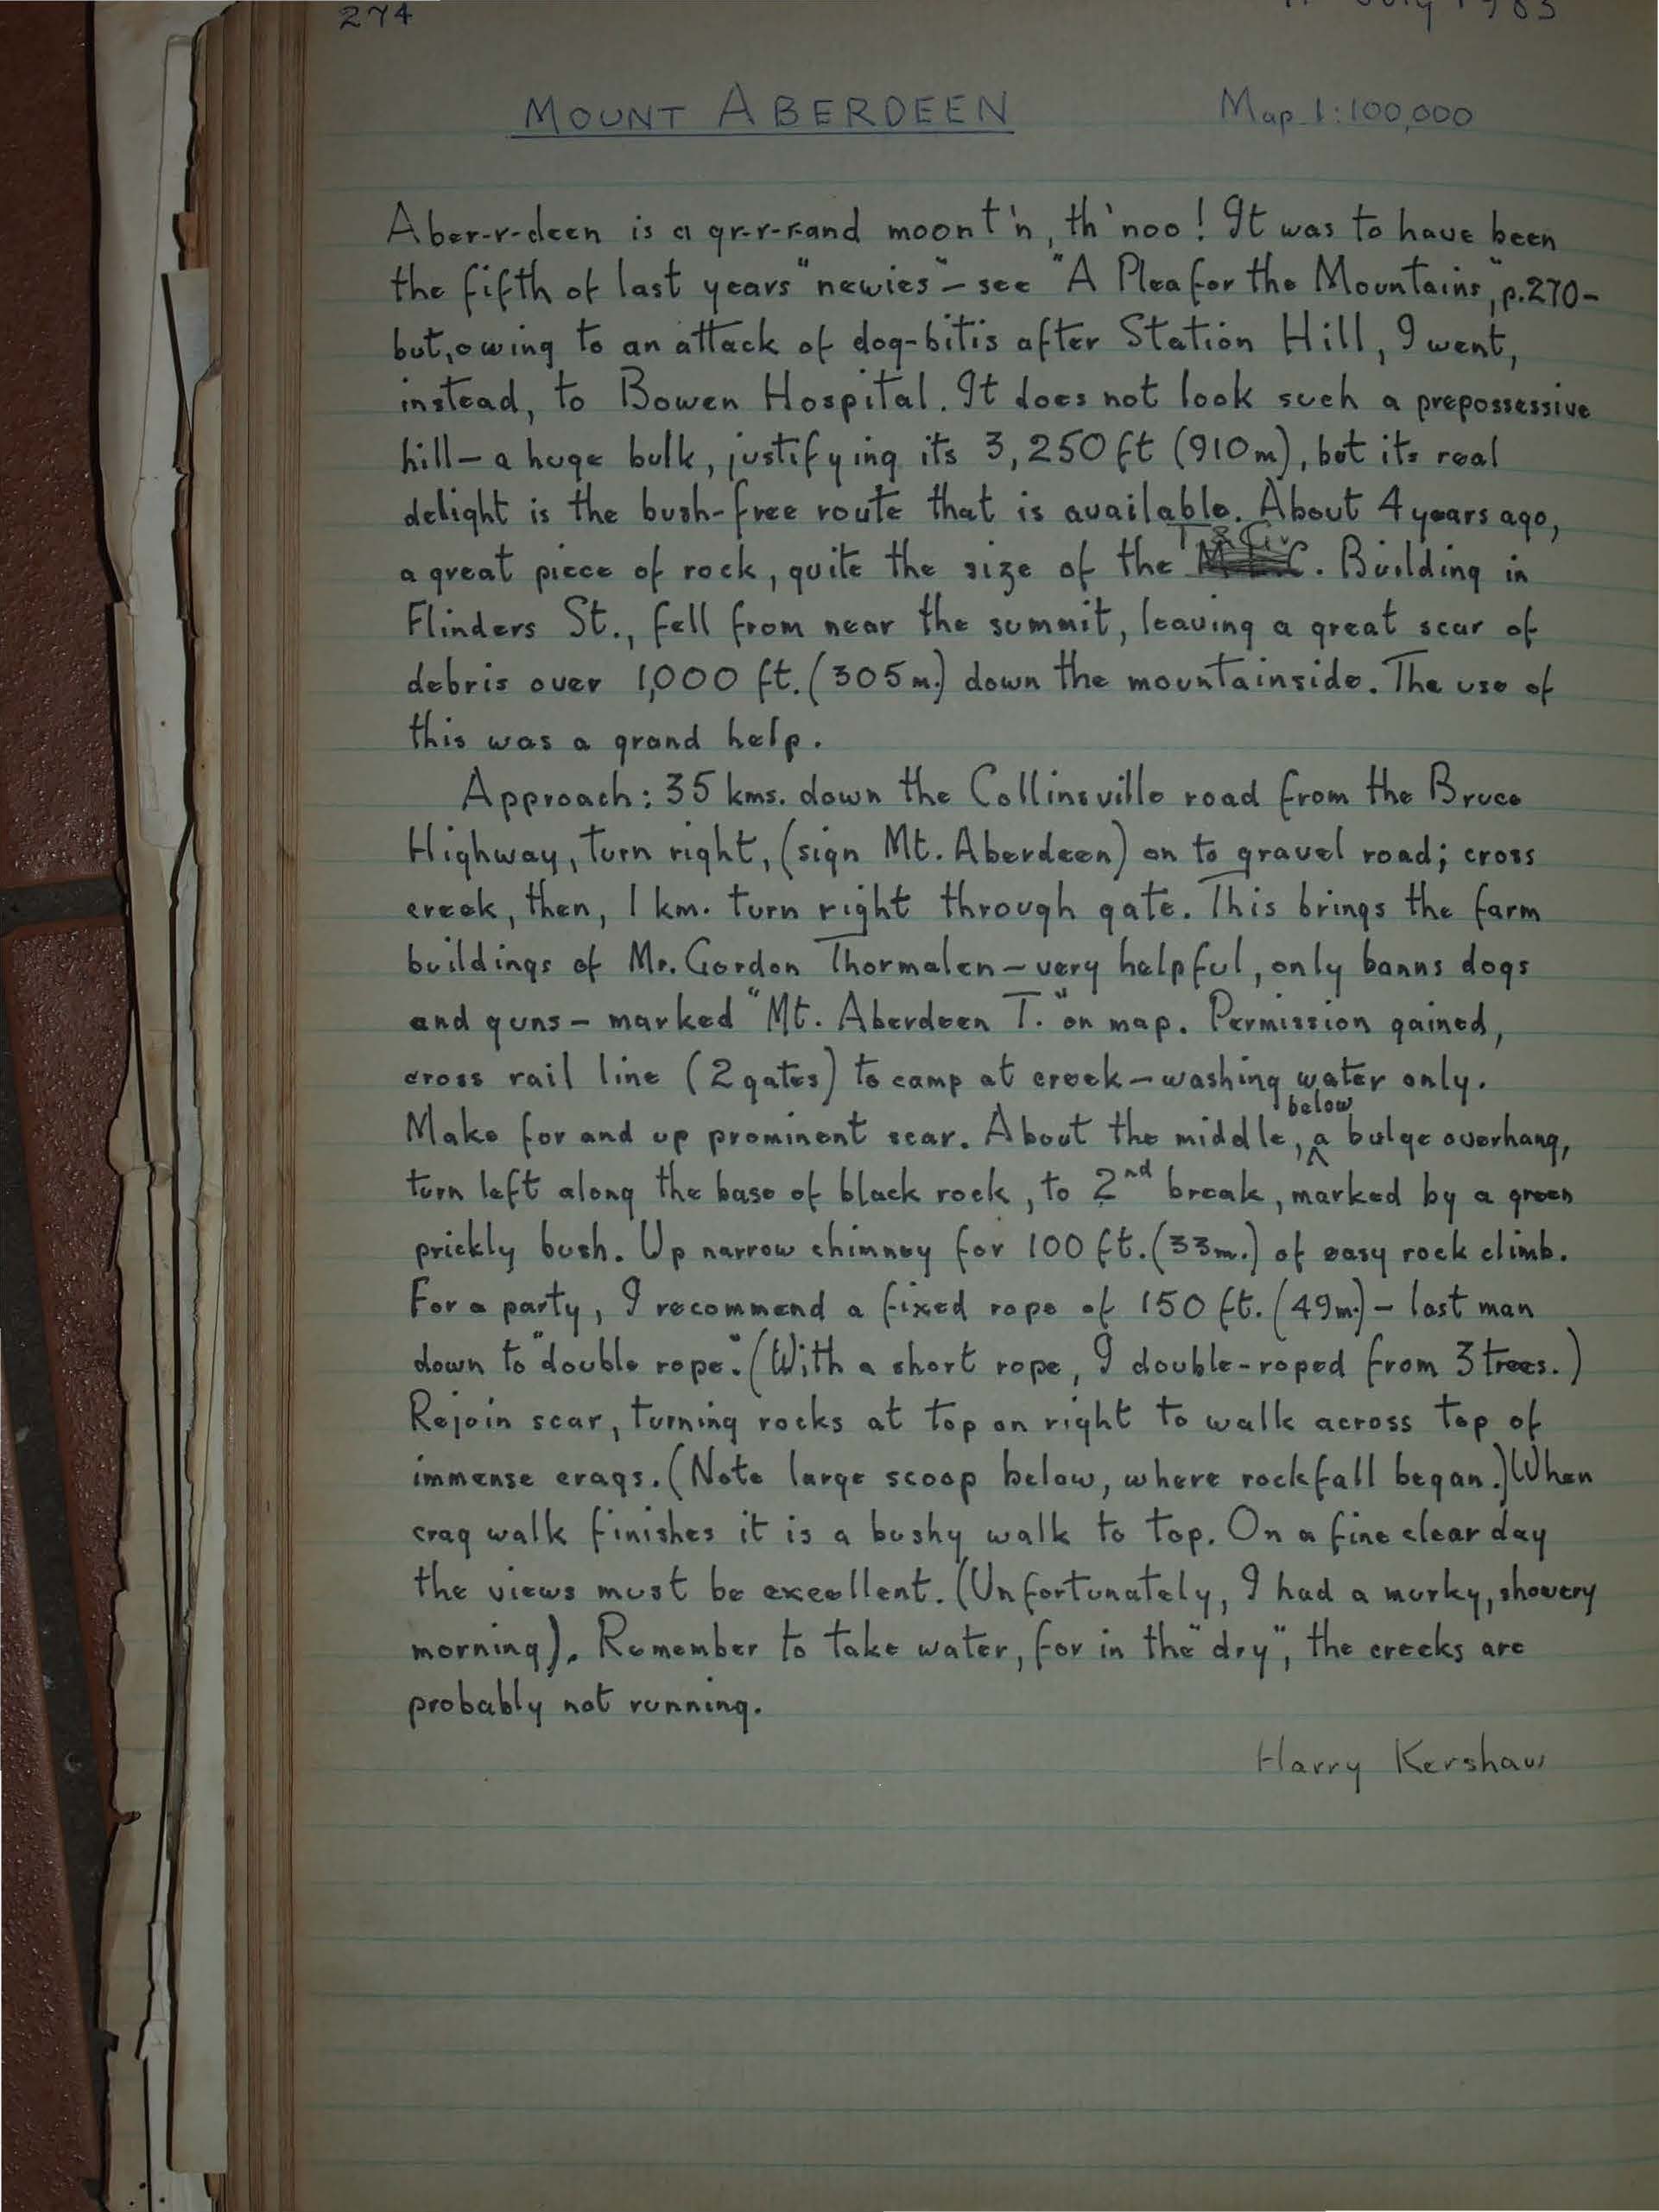 274
July 1983
MOUNT ABERDEEN Map 1:100,000
Aber-r-deen is a gr-r-r-and moont'n, th'noo! It was to have been
the fifth of last years "newies" – see "A Plea for the Mountains," p.270 –
but, owing to an attack of dog-bitis after Station Hill, I went,
instead, to Bowen Hospital. It does not look such a prepossessive
hill – a huge bulk, justifying its 3,250 ft (910 m), but its real
delight is the bush-free route that is available. About 4 years ago,
a great piece of rock, quite the size of the T & G. Building in
Flinders St., fell from near the summit, leaving a great scar of
debris over 1,000 ft. (305 m.) down the mountainside. The use of
this was a grand help.
Approach: 35 kms. down the Collinsville road from the Bruce
Highway, turn right, (sign Mt. Aberdeen) on to gravel road; cross
creek, then, 1 km. turn right through gate. This brings the farm
buildings of Mr. Gordon Thormalen – very helpful, only banns dogs
and guns – marked "Mt. Aberdeen T." on map. Permission gained,
cross rail line (2 gates) to camp at creek – washing water only.
Make for and up prominent scar. About the middle, below a bulge overhang,
turn left along the base of black rock, to 2nd break, marked by a green
prickly bush. Up narrow chimney for 100 ft. (33 m.) of easy rock climb.
For a party, I recommend a fixed rope of 150 ft. (49 m.) – last man
down to "double rope". (With a short rope, I double-roped from 3 trees.)
Rejoin scar, turning rocks at top on right to walk across top of
immense crags. (Note large scoop below, where rockfall began.) When
crag walk finishes it is a bushy walk to top. On a fine clear day
the views must be excellent. (Unfortunately, I had a murky, showery
morning). Remember to take water, for in the "dry", the creeks are
probably not running.
Harry Kershaw